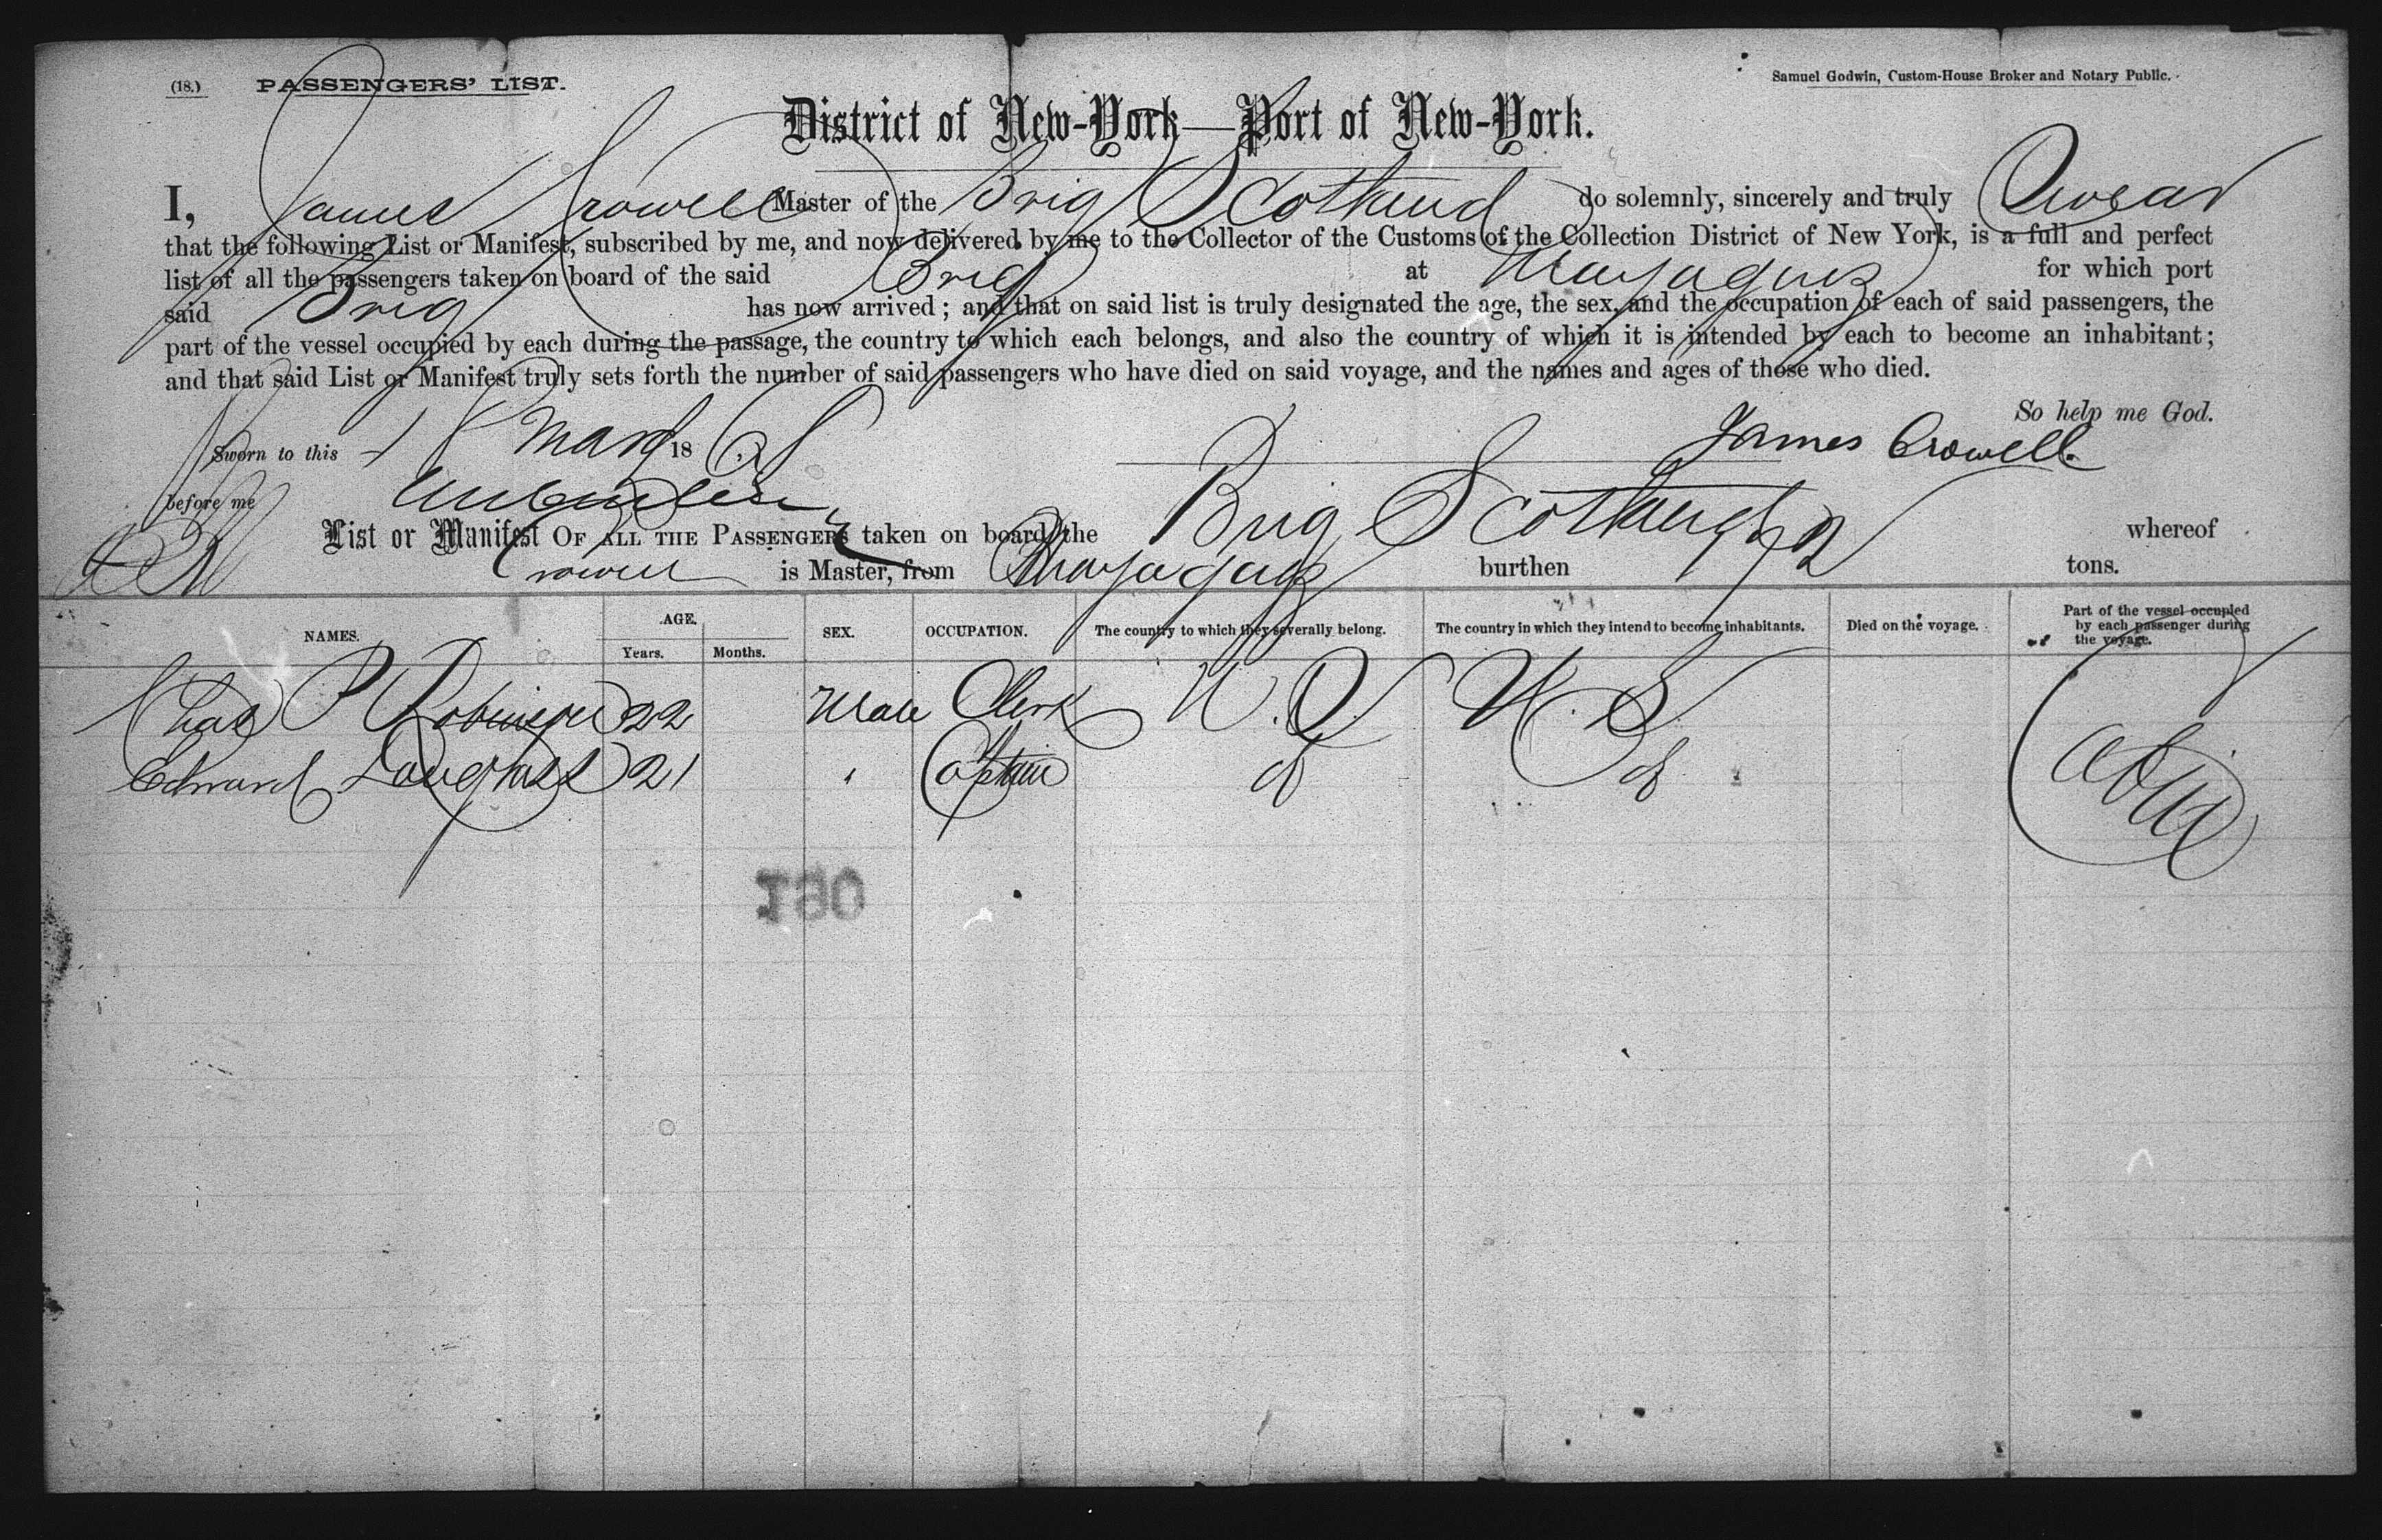 (18.) PASSENGERS' LIST.
Samuel Godwin, Custom-House Broker and Notary Public.
District of New-York—Port of New-York.
I, James Crowell Master of the Brig Scotland do solemnly, sincerely and truly Swear
that the following List or Manifest, subscribed by me, and now delivered by me to the Collector of the Customs of the Collection District of New York, is a full and perfect
list of all the passengers taken on board of the said Brig at Mayaguez for which port
said Brig has now arrived; and that on said list is truly designated the age, the sex, and the occupation of each of said passengers, the
part of the vessel occupied by each during the passage, the country to which each belongs, and also the country of which it is intended by each to become an inhabitant;
and that said List or Manifest truly sets forth the number of said passengers who have died on said voyage, and the names and ages of those who died.
So help me God.
Sworn to this 18 March 18 James Crowell
before me
List or Manifest OF ALL THE PASSENGERS taken on board the Brig Scotland whereof
Crowell is Master, from Mayaguez burthen tons.
NAMES. AGE. Years. Months. SEX. OCCUPATION. The country to which they severally belong. The country in which they intend to become inhabitants. Died on the voyage. Part of the vessel occupied by each passenger during the voyage.
Chas P Robinson 22 Male Clerk U.S. U.S.
Edward Douglass 21 " Captain do do Cabin
190